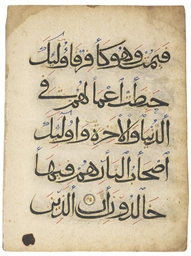 فَيَمُتْ وَهُوَ كَافِرٌ فَأُولَٰئِكَ
حَبِطَتْ أَعْمَالُهُمْ فِي
الدُّنْيَا وَالْآخِرَةِ وَأُولَٰئِكَ
أَصْحَابُ النَّارِ هُمْ فِيهَا
خَالِدُونَ إِنَّ الَّذِينَ